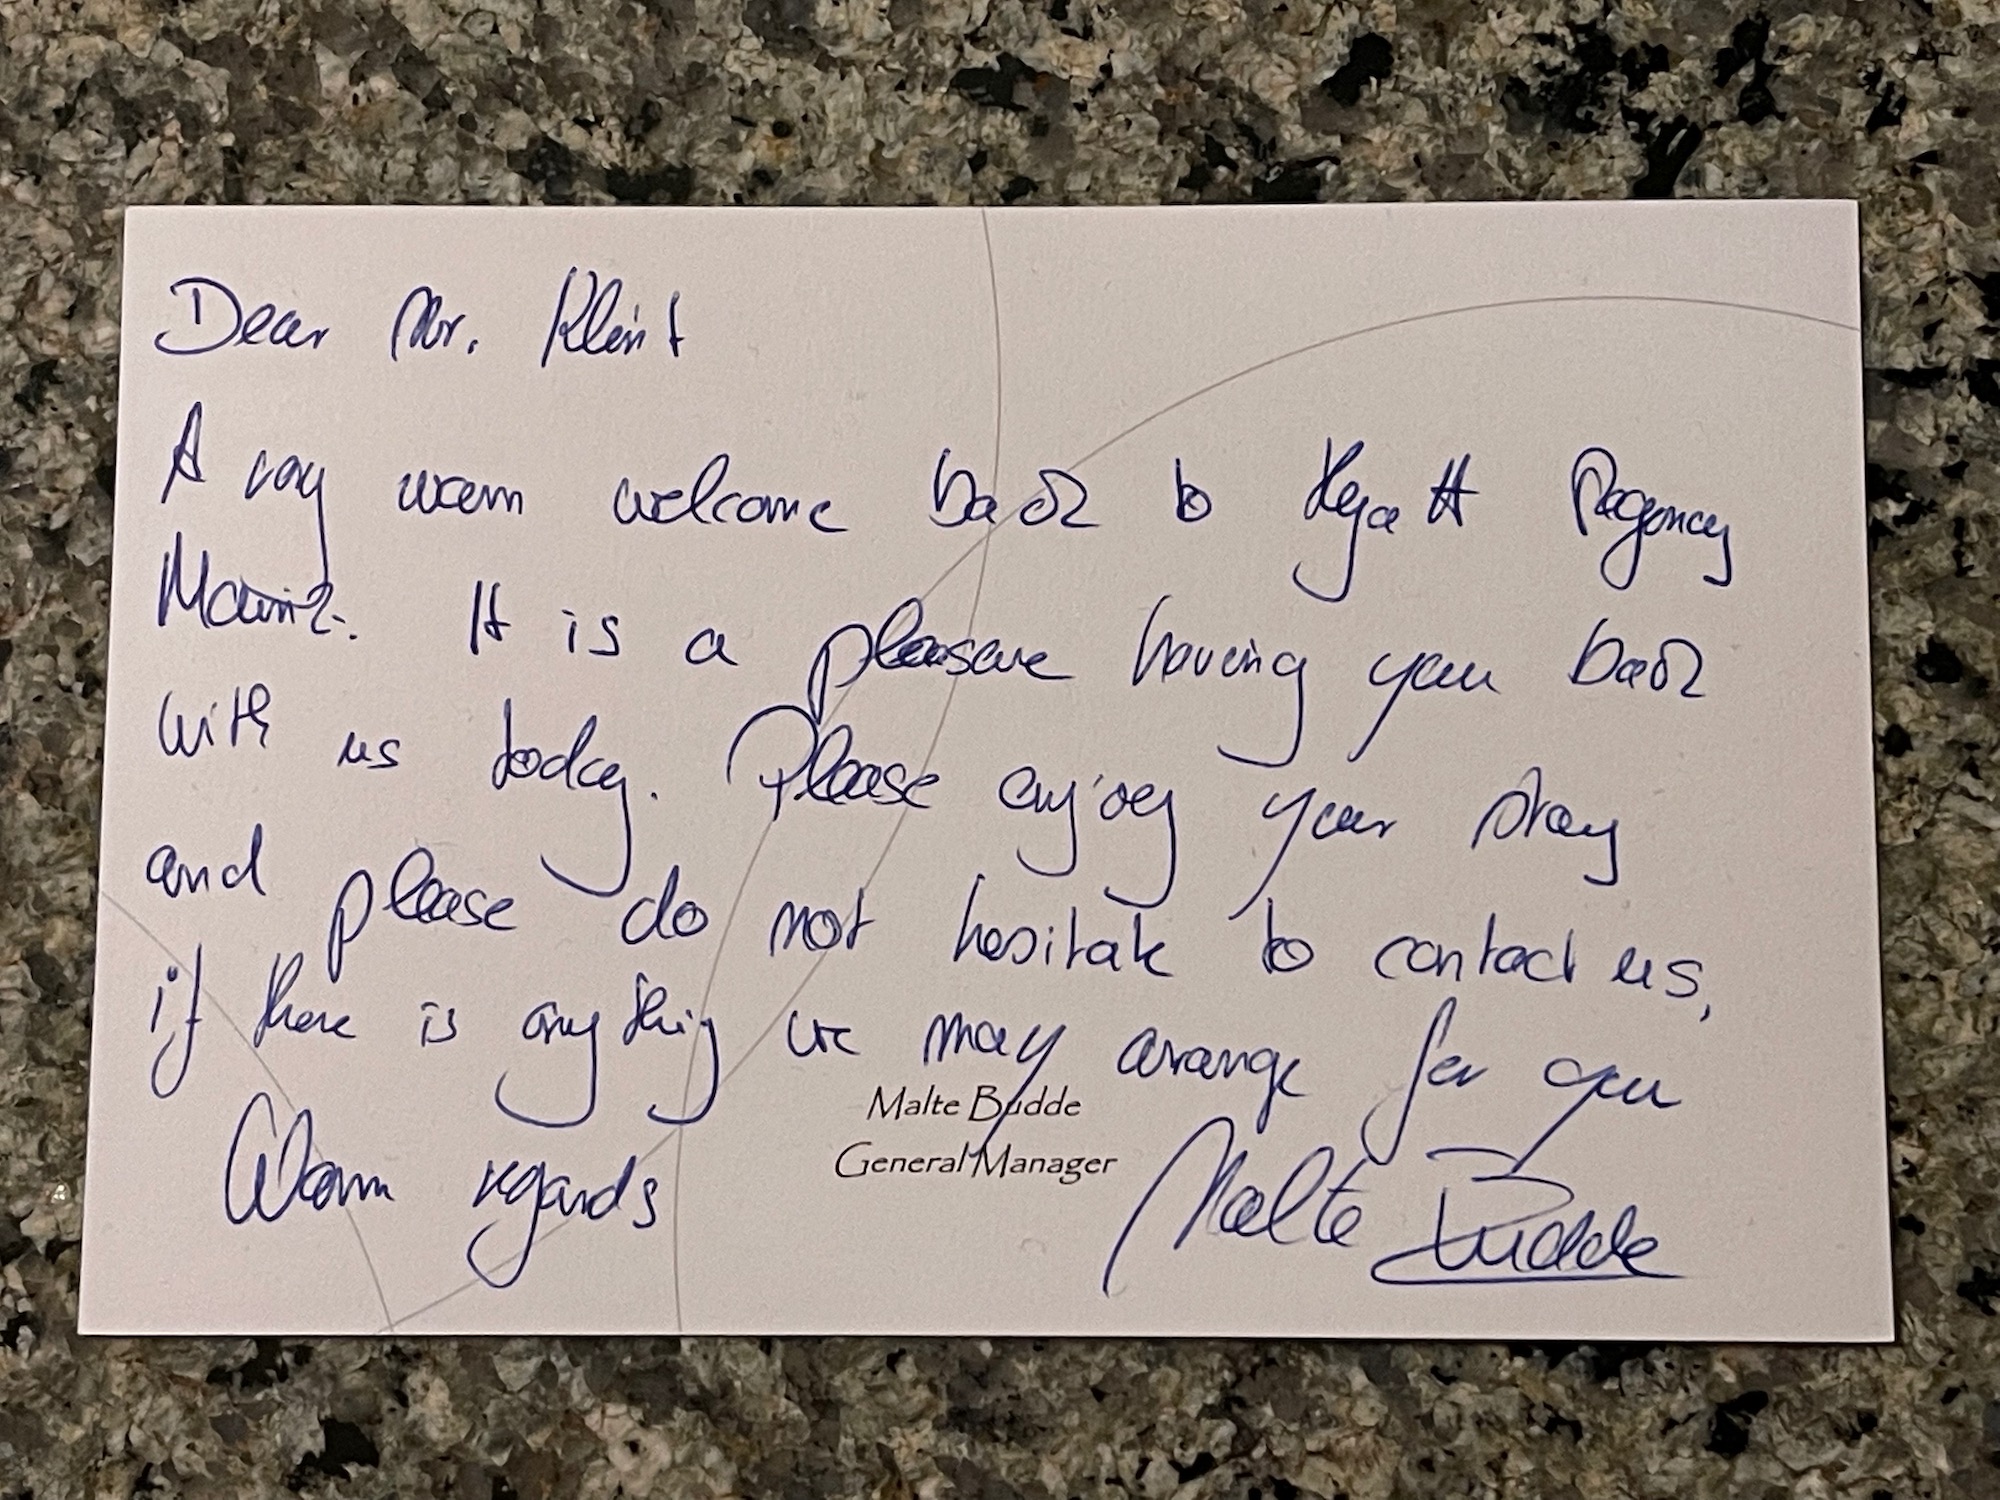 Dear Mr. Klint
A very warm welcome back to Hyatt Regency
Mainz. It is a pleasure having you back
with us today. Please enjoy your stay
and please do not hesitate to contact us,
if there is anything we may arrange for you
Malte Budde
General Manager
Warm regards Malte Budde